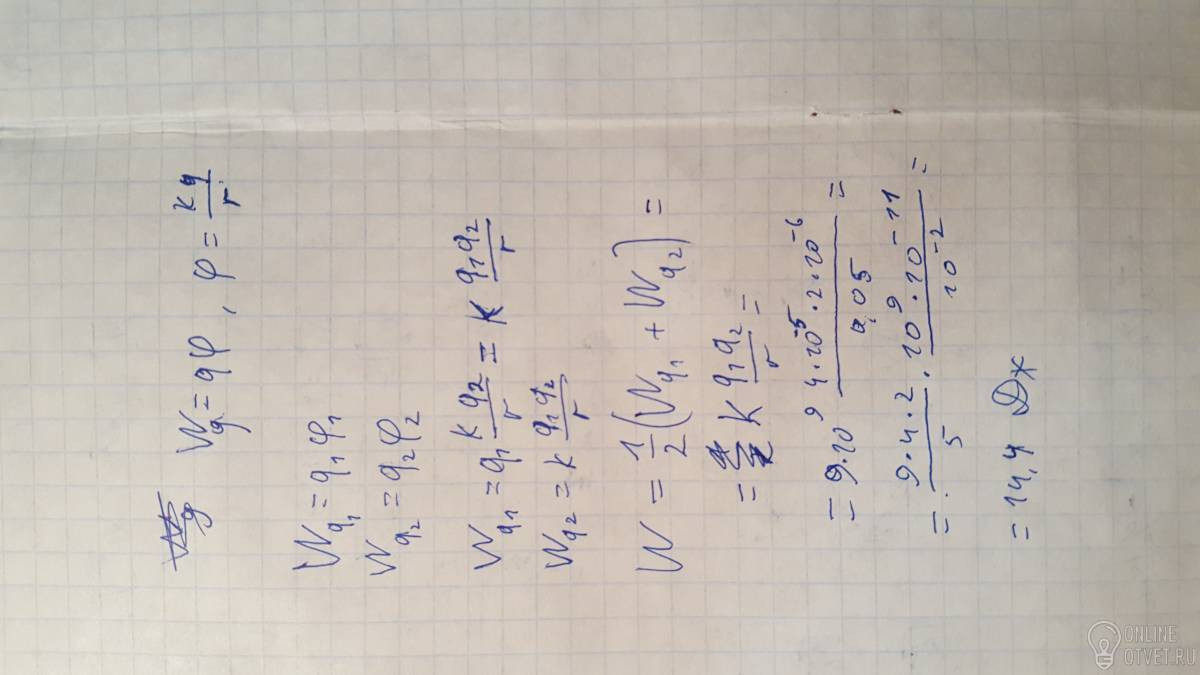 W_q = qφ , φ = kq/r
W_q₁ = q₁φ₁
W_q₂ = q₂φ₂
W_q₁ = q₁ kq₂/r = k q₁q₂/r
W_q₂ = k q₁q₂/r
W = 1/2 (W_q₁ + W_q₂) =
= k q₁q₂/r =
= 9·10⁹ 4·10⁻⁵·2·10⁻⁶/0,05 =
= 9·4·2/5 · 10⁹·10⁻¹¹/10⁻² =
= 14,4 Дж
ONLINE
OTVET.RU